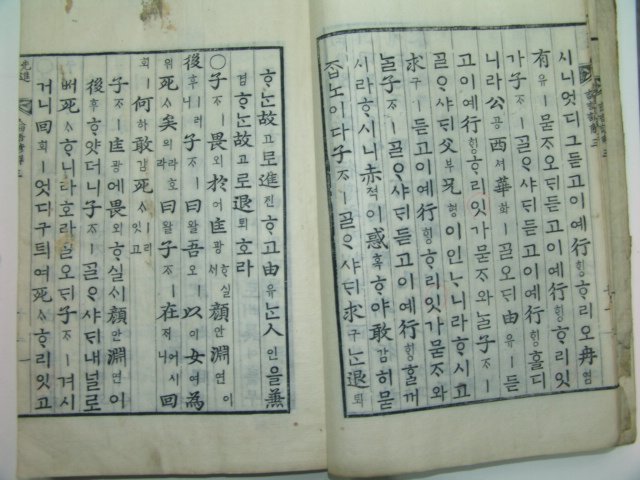 論語諺解三
시니엇디그듣고이예行ᄒᆡᆼᄒᆞ리오冉염
有유ㅣ묻ᄌᆞ오ᄃᆡ듣고이예行ᄒᆡᆼᄒᆞ리잇
가子ᄌᆞㅣᄀᆞᆯᄋᆞ샤ᄃᆡ듣고이예行ᄒᆡᆼ홀디
니라公공西셔華화ㅣᄀᆞᆯ오ᄃᆡ由유ㅣ듣
고이예行ᄒᆡᆼᄒᆞ리잇가묻ᄌᆞ와ᄂᆞᆯ子ᄌᆞㅣ
ᄀᆞᆯᄋᆞ샤ᄃᆡ父부兄형이인ᄂᆞ니라ᄒᆞ시고
求구ㅣ듣고이예行ᄒᆡᆼᄒᆞ리잇가묻ᄌᆞ와
ᄂᆞᆯ子ᄌᆞㅣᄀᆞᆯᄋᆞ샤ᄃᆡ듣고이예行ᄒᆡᆼ홀꺼
시라ᄒᆞ시니赤젹이惑혹ᄒᆞ야敢감히묻
ᄌᆞᆸ노이다子ᄌᆞㅣᄀᆞᆯᄋᆞ샤ᄃᆡ求구ᄂᆞᆫ退퇴
ᄒᆞᄂᆞᆫ故고로進진ᄒᆞ고由유ᄂᆞᆫ人인을兼
겸ᄒᆞᄂᆞᆫ故고로退퇴호라
○子ᄌᆞㅣ畏외於어匡광ᄒᆞ실ᄉᆡ顔안淵연이
後후ㅣ러니子ᄌᆞㅣ曰왈吾오ㅣ以이女여爲
위死ᄉᆞ矣의라호라曰왈子ᄌᆞㅣ在ᄌᆡ어시니回
회ㅣ何하敢감死ᄉᆞㅣ리잇고
子ᄌᆞㅣ匡광에畏외ᄒᆞ실ᄉᆡ顔안淵연이
後후ᄒᆞ얏더니子ᄌᆞㅣᄀᆞᆯᄋᆞ샤ᄃᆡ내널로
ᄡᅥ死ᄉᆞᄒᆞ니라호라ᄀᆞᆯ오ᄃᆡ子ᄌᆞㅣ겨시
거니回회ㅣ엇디구틔여死ᄉᆞᄒᆞ리잇고
先進
論語諺解三